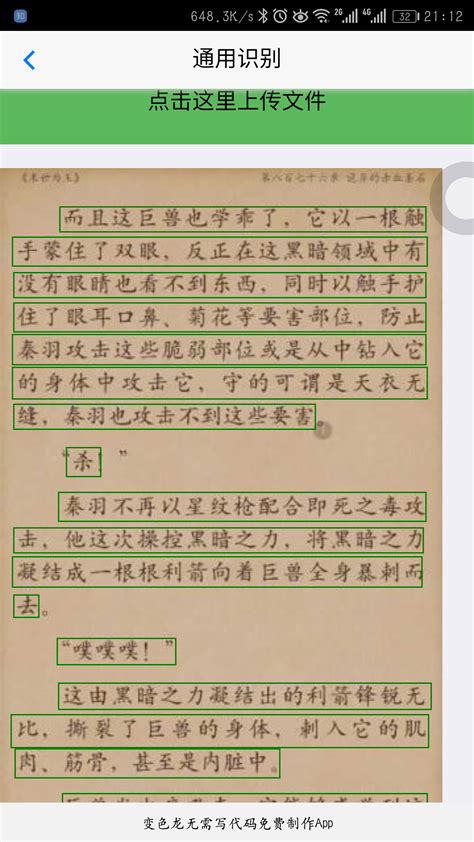 知 648.3K/s 2G 4G 32 21:12
通用识别
点击这里上传文件
《末世为王》 第八百七十六章 诡异的赤血基石
而且这巨兽也学乖了，它以一根触
手蒙住了双眼，反正在这黑暗领域中有
没有眼睛也看不到东西，同时以触手护
住了眼耳口鼻、菊花等要害部位，防止
秦羽攻击这些脆弱部位或是从中钻入它
的身体中攻击它，守的可谓是天衣无
缝，秦羽也攻击不到这些要害。
“杀！”
秦羽不再以星纹枪配合即死之毒攻
击，他这次操控黑暗之力，将黑暗之力
凝结成一根根利箭向着巨兽全身暴刺而
去。
“噗噗噗！”
这由黑暗之力凝结出的利箭锋锐无
比，撕裂了巨兽的身体，刺入它的肌
肉、筋骨，甚至是内脏中。
变色龙无需写代码免费制作App